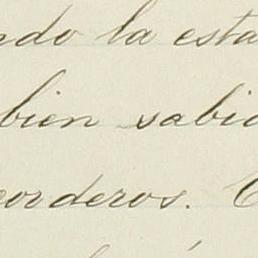 ndo la esta
bien sabid
corderos.